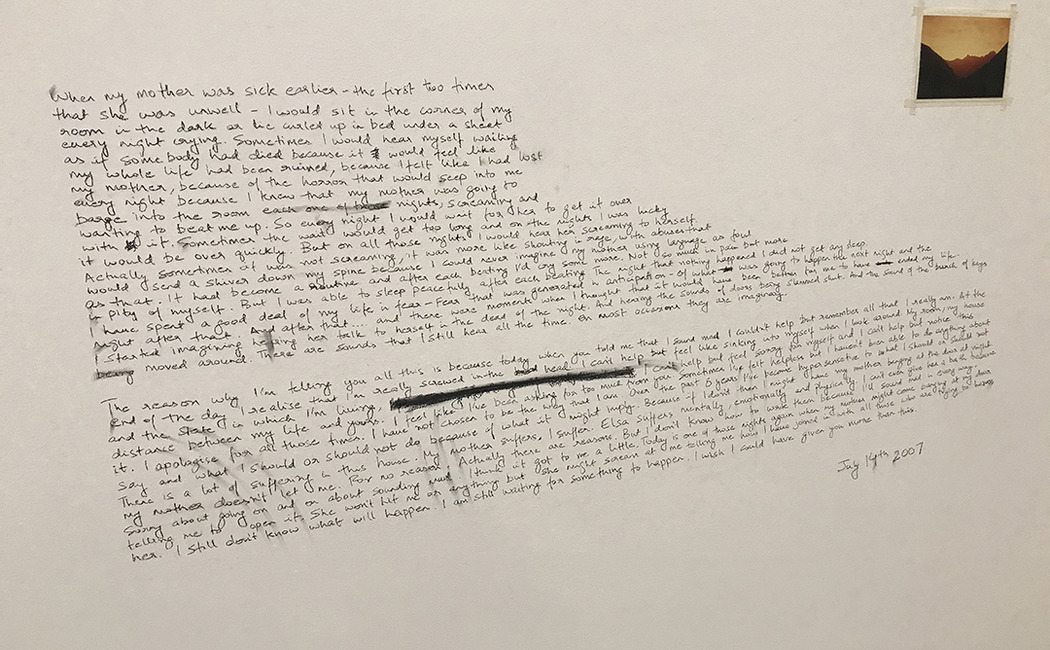 When my mother was sick earlier - the first two times
that she was unwell - I would sit in the corner of my
room in the dark or lie curled up in bed under a sheet
every night crying. Sometimes I would hear myself wailing
as if somebody had died because it would feel like
my whole life had been ruined, because I felt like I had lost
my mother, because of the horror that would seep into me
every night because I knew that my mother was going to
barge into the room each one of those nights, screaming and
wanting to beat me up. So every night I would wait for her to get it over
with it. Sometimes the wait would get too long and on the nights I was lucky
it would be over quickly. But on all those nights I would hear her screaming to herself.
Actually sometimes it was not screaming, it was more like shouting in rage, with abuses that
would send a shiver down my spine because I could never imagine my mother using language as foul
as that. It had become a routine and after each beating I'd cry some more. Not so much in pain but more
in pity of myself. But I was able to sleep peacefully after each beating. The night that nothing happened I did not get any
I have spent a good deal of my life in fear - Fear that was generated in anticipation - Of what was going to happen the next night and the
night after that. And after that... and there were moments when I thought that it would have been better for me to have ended my life.
I started imagining hearing her talk to herself in the dead of the night. And hearing the sounds of doors being slammed shut. And the sound of the bunch of keys
being moved around. There are sounds that I still hear all the time. On most occasions they are imaginary.
The reason why I'm telling you all this is because today when you told me that I sound mad I couldn't help but remember all that I really am. At the
end of the day I realise that I'm really screwed in the head. I can't help but feel like sinking into myself when I look around my room, my house
and the state in which I'm living. I can't help but feel sorry for myself and I can't help but notice this
distance between my life and yours. I feel like I've been asking for too much from you sometimes. I've felt helpless but I haven't been able to do anything about
it. I apologise for all those times. I have not chosen to be the way that I am. Over the past 6 years I've become hypersensitive to what I should or should not
say and what I should or should not do because of what it might imply. Because if I don't then I might have my mother banging at the door at night
There is a lot of suffering in this house. My mother suffers, I suffer. Elsa suffers mentally, emotionally and physically. I can't even give her a bath because
my mother doesn't let me. For no reason. Actually there are reasons. But I don't know how to write them because I'll sound mad in every way.
Sorry about going on and on about sounding mad. I think it got to me a little. Today is one of those nights again when my mother might come banging at my door
telling me to open it. She won't hit me or anything but she might scream at me telling me how I have joined with all those who are trying to harm
her. I still don't know what will happen. I am still waiting for something to happen. I wish I could have given you more than this.
July 14th 2007